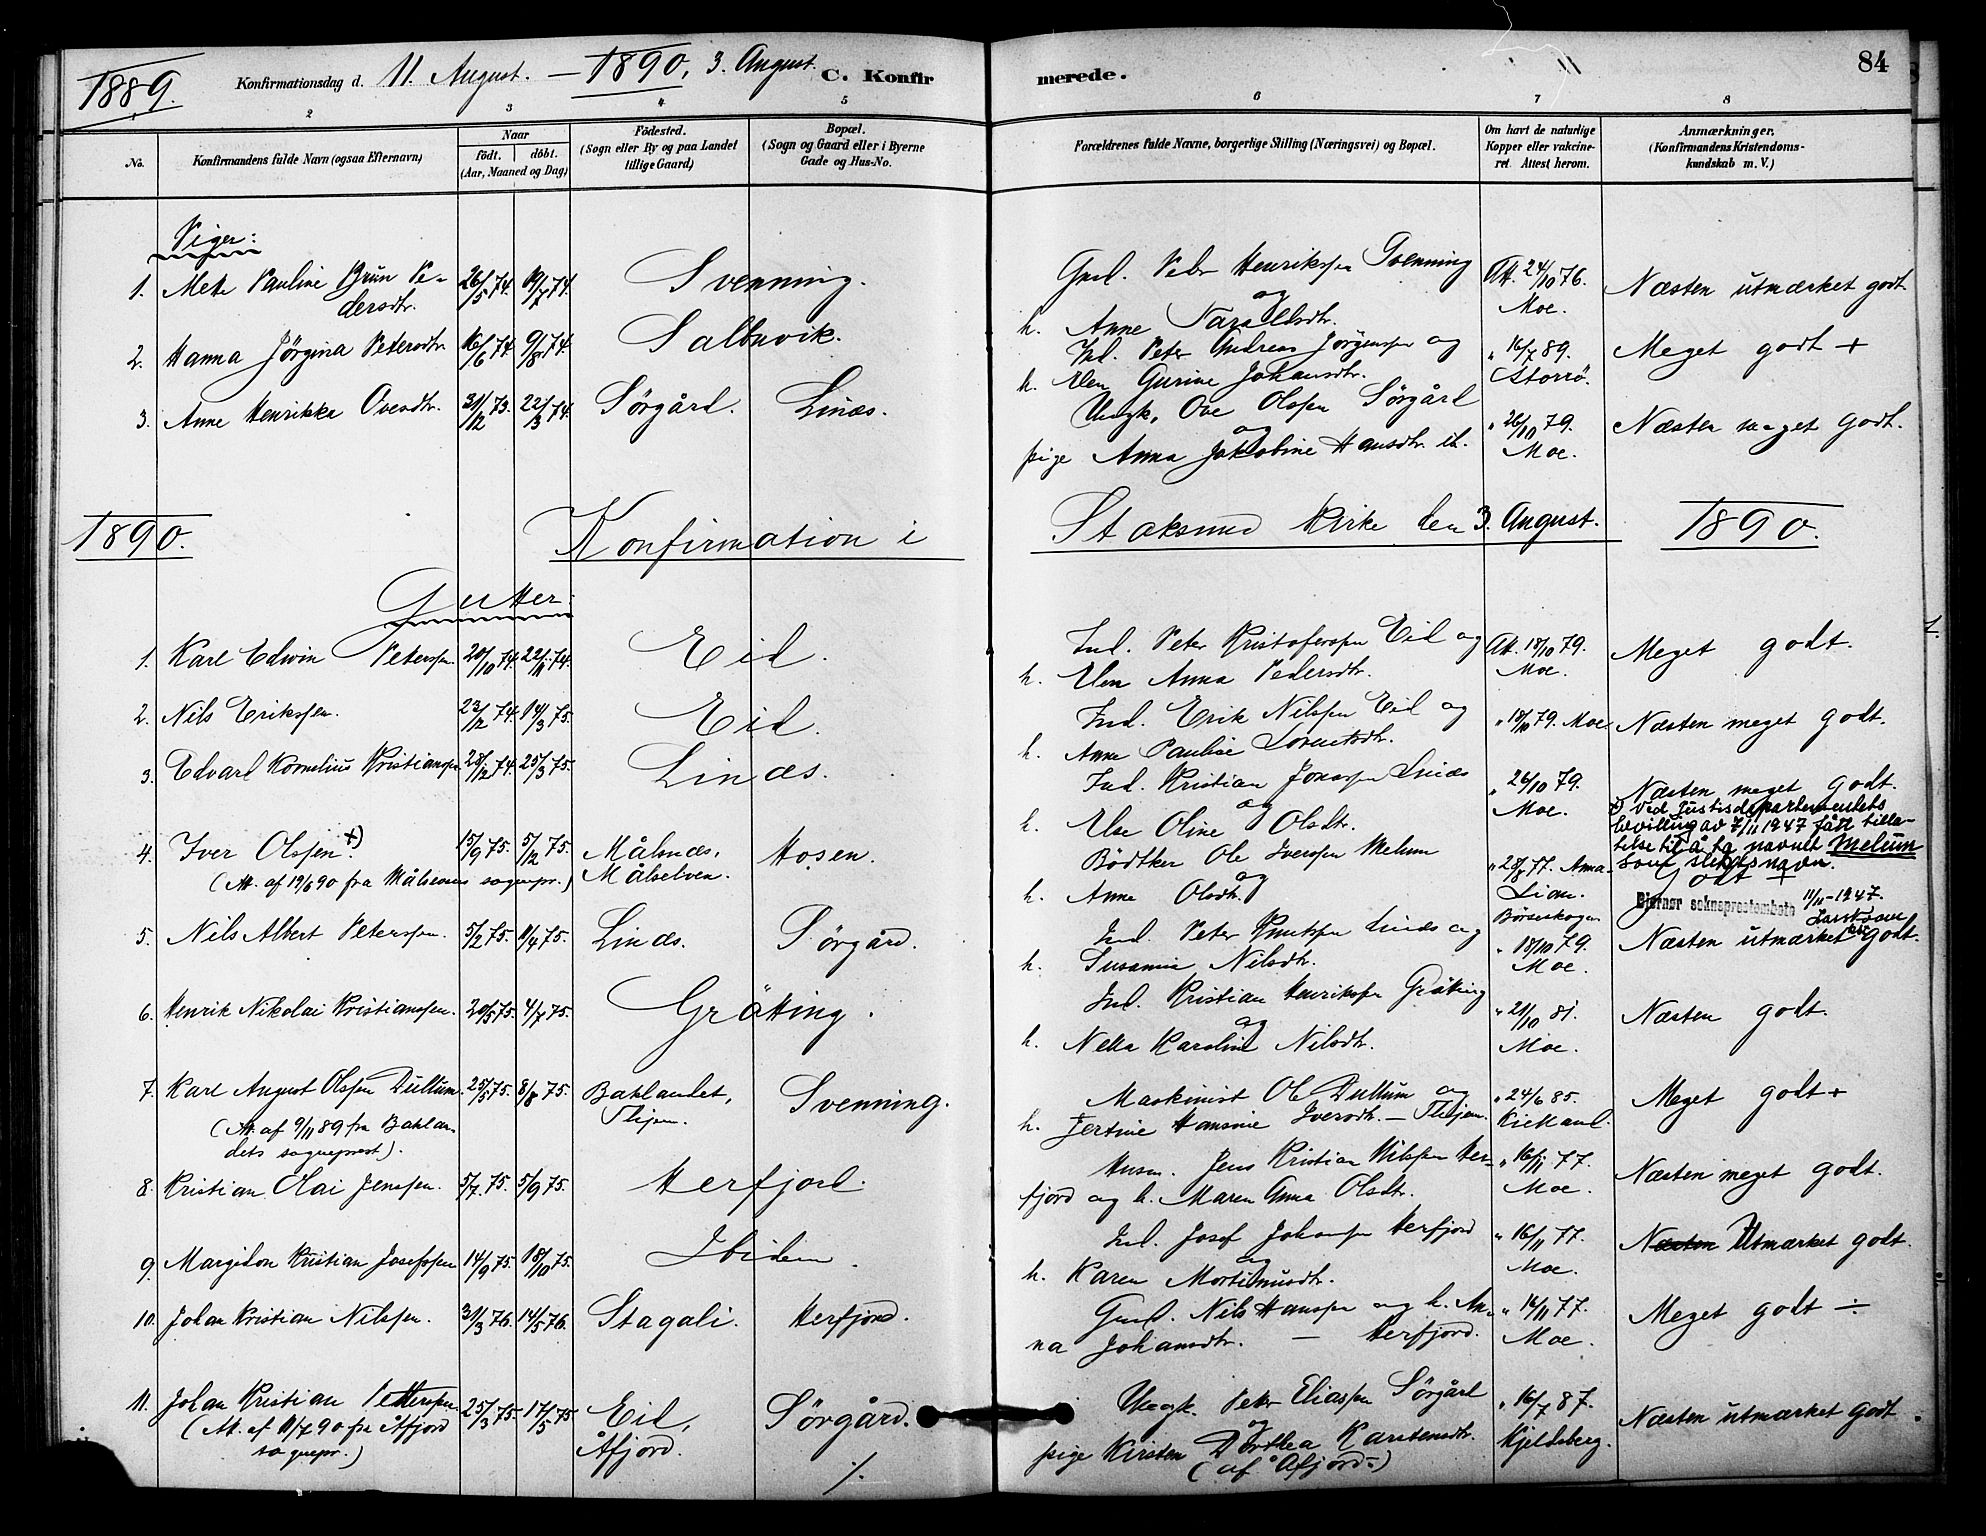 1889.
Konfirmationsdag d. 11. August. — 1890, 3. August. C. Konfir
merede.
84
2 3 4 5 6 7 8
No.
Konfirmandens fulde Navn (ogsaa Efternavn)
Naar
födt. döbt.
(Aar, Maaned og Dag)
Födested.
(Sogn eller By og paa Landet
tillige Gaard)
Bopæl.
(Sogn og Gaard eller i Byerne
Gade og Hus-No.
Forældrenes fulde Navne, borgerlige Stilling (Næringsvei) og Bopæl.
Om havt de naturlige
Kopper eller vakcine-
ret. Attest herom.
Anmærkninger.
(Konfirmandens Kristendoms-
kundskab m. V.)
Piger:
1. Mete Pauline Brun Pe-
dersdtr. 26/5 74. 19/7 74. Svenning.
Gmd. Peder Henrikssen Svenning
og
h. Anne Taraldsdtr.
Att. 24/10 76.
Moe.
Næsten utmærket godt
2. Hanna Jörgina Petersdtr. 16/6 74. 9/8 74. Salbuvik.
Ind. Peter Andreas Jörgenssen og
h. Elen Gurine Johansdtr.
" 16/7 89.
Storrö.
Meget godt +
3. Anne Henrikka Ovesdtr. 31/12 73. 22/3 74. Sörgård. Linæs.
Ungk. Ove Olssen Sörgård
og
pige Anna Jakobine Hansdtr. ib.
" 26/10 79.
Moe.
Næsten meget godt.
1890.
Konfirmation i
Stoksund Kirke den 3. August.
1890.
Gutter:
1. Karl Edwin Peterssen. 20/10 74. 22/11 74. Eid.
Ind. Peter Kristoferssen Eid og
h. Elen Anna Pedersdtr.
Att. 18/10 79.
Moe.
Meget godt.
2. Nils Erikssen. 23/12 74. 14/3 75. Eid.
Ind. Erik Nilssen Eid og
h. Anne Pauline Lorentsdtr.
" 18/10 79. Moe
Næsten meget godt.
3. Edvard Kornelius Kristianssen 28/12 74. 25/3 75. Linæs.
Ind. Kristian Jonassen Linæs
og
h. Else Oline Olsdtr.
" 26/10 79.
Moe.
Næsten meget godt.
4. Iver Olssen. +) 15/9 75. 5/12 75. Målsnæs, Hosen.
(Att. af 19/6 90 fra Målselvens sognepr.) Målselven.
Bödtker Ole Iverssen Melum
og
h. Anne Olsdtr.
" 28/8 77. Anna
Lian.
Börseskogn
+) Ved Justisdepartementets
bevilling av 7/11 1947 fått tilla-
telse til å ta navnet Melum
som slektsnavn.
Godt +
Bjørnør sokneprestembete 11/11-1947.
5. Nils Albert Peterssen. 5/2 75. 11/4 75. Linæs. Sörgård.
Ind. Peter Knutssen Linæs og
h. Susanna Nilsdtr.
" 18/10 79.
Moe.
Næsten utmærket godt.
6. Henrik Nikolai Kristianssen. 20/5 75. 4/7 75. Grötting.
Ind. Kristian Henrikssen Grötting
og
h. Nella Karoline Nilsdtr.
" 21/10 81.
Moe.
Næsten godt.
7. Karl August Olssen Dullum. 25/5 75. 8/8 75. Baklandet, Svenning.
(Att. af 9/11 89 fra Baklan- Thjem.
dets sogneprest).
Maskinist Ole Dullum og
h. Jertine Hansine Iversdtr. — Thjem.
" 24/6 85.
Kielland.
Meget godt +
8. Kristian Olai Jenssen. 5/7 75. 5/9 75. Herfjord.
Husm. Jens Kristian Nilssen Her-
fjord og h. Maren Anna Olsdtr.
" 16/11 77.
Moe.
Næsten meget godt.
9. Margidon Kristian Josefssen 14/9 75. 18/10 75. Ibidem.
Ind. Josef Johanssen Herfjord
og
h. Karen Mortinusdtr.
" 16/11 77.
Moe.
Næsten Utmærket godt.
10. Johan Kristian Nilssen. 31/3 76. 14/5 76. Stagali. Herfjord.
Gmd. Nils Hanssen og h. An-
na Johansdtr. — Herfjord.
" 16/11 77.
Moe.
Meget godt ÷
11. Johan Kristian Petterssen 25/3 75. 17/5 75 Eid, Sörgård.
(Att. af 11/7 90 fra Åfjord Åfjord.
sognepr.)
Ungk. Peter Eliassen Sörgård
og
pige Kirsten Dorthea Karstensdtr.
(af Åfjord-)
" 16/7 87.
Kjeldsberg.
Næsten utmærket godt
./.